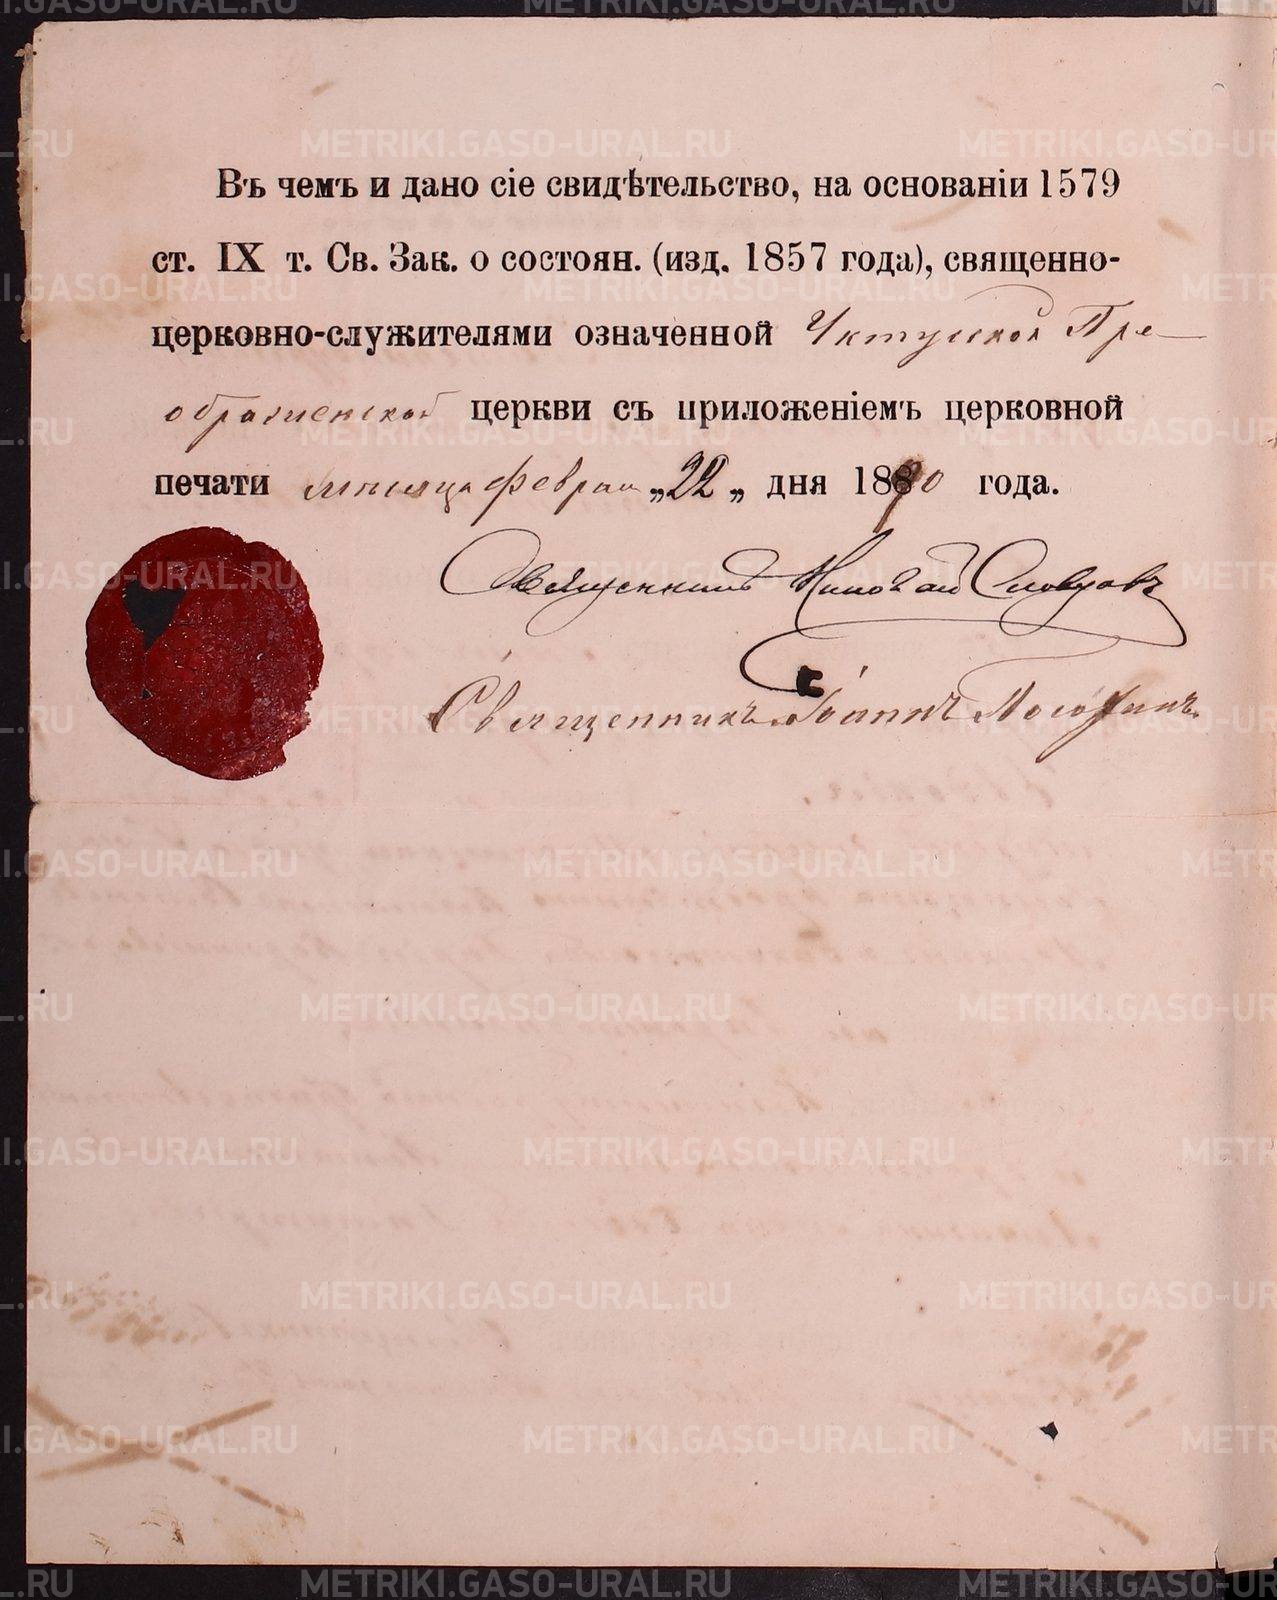 Въ чемъ и дано сіе свидѣтельство, на основаніи 1579
ст. IX т. Св. Зак. о состоян. (изд. 1857 года), священно-
церковно-служителями означенной Уктусской Пре-
ображенской церкви съ приложеніемъ церковной
печати мѣсяца февраля „22„ дня 1890 года.
Священникъ Николай Словцовъ
Священникъ Іоаннъ
METRIKI.GASO-URAL.RU